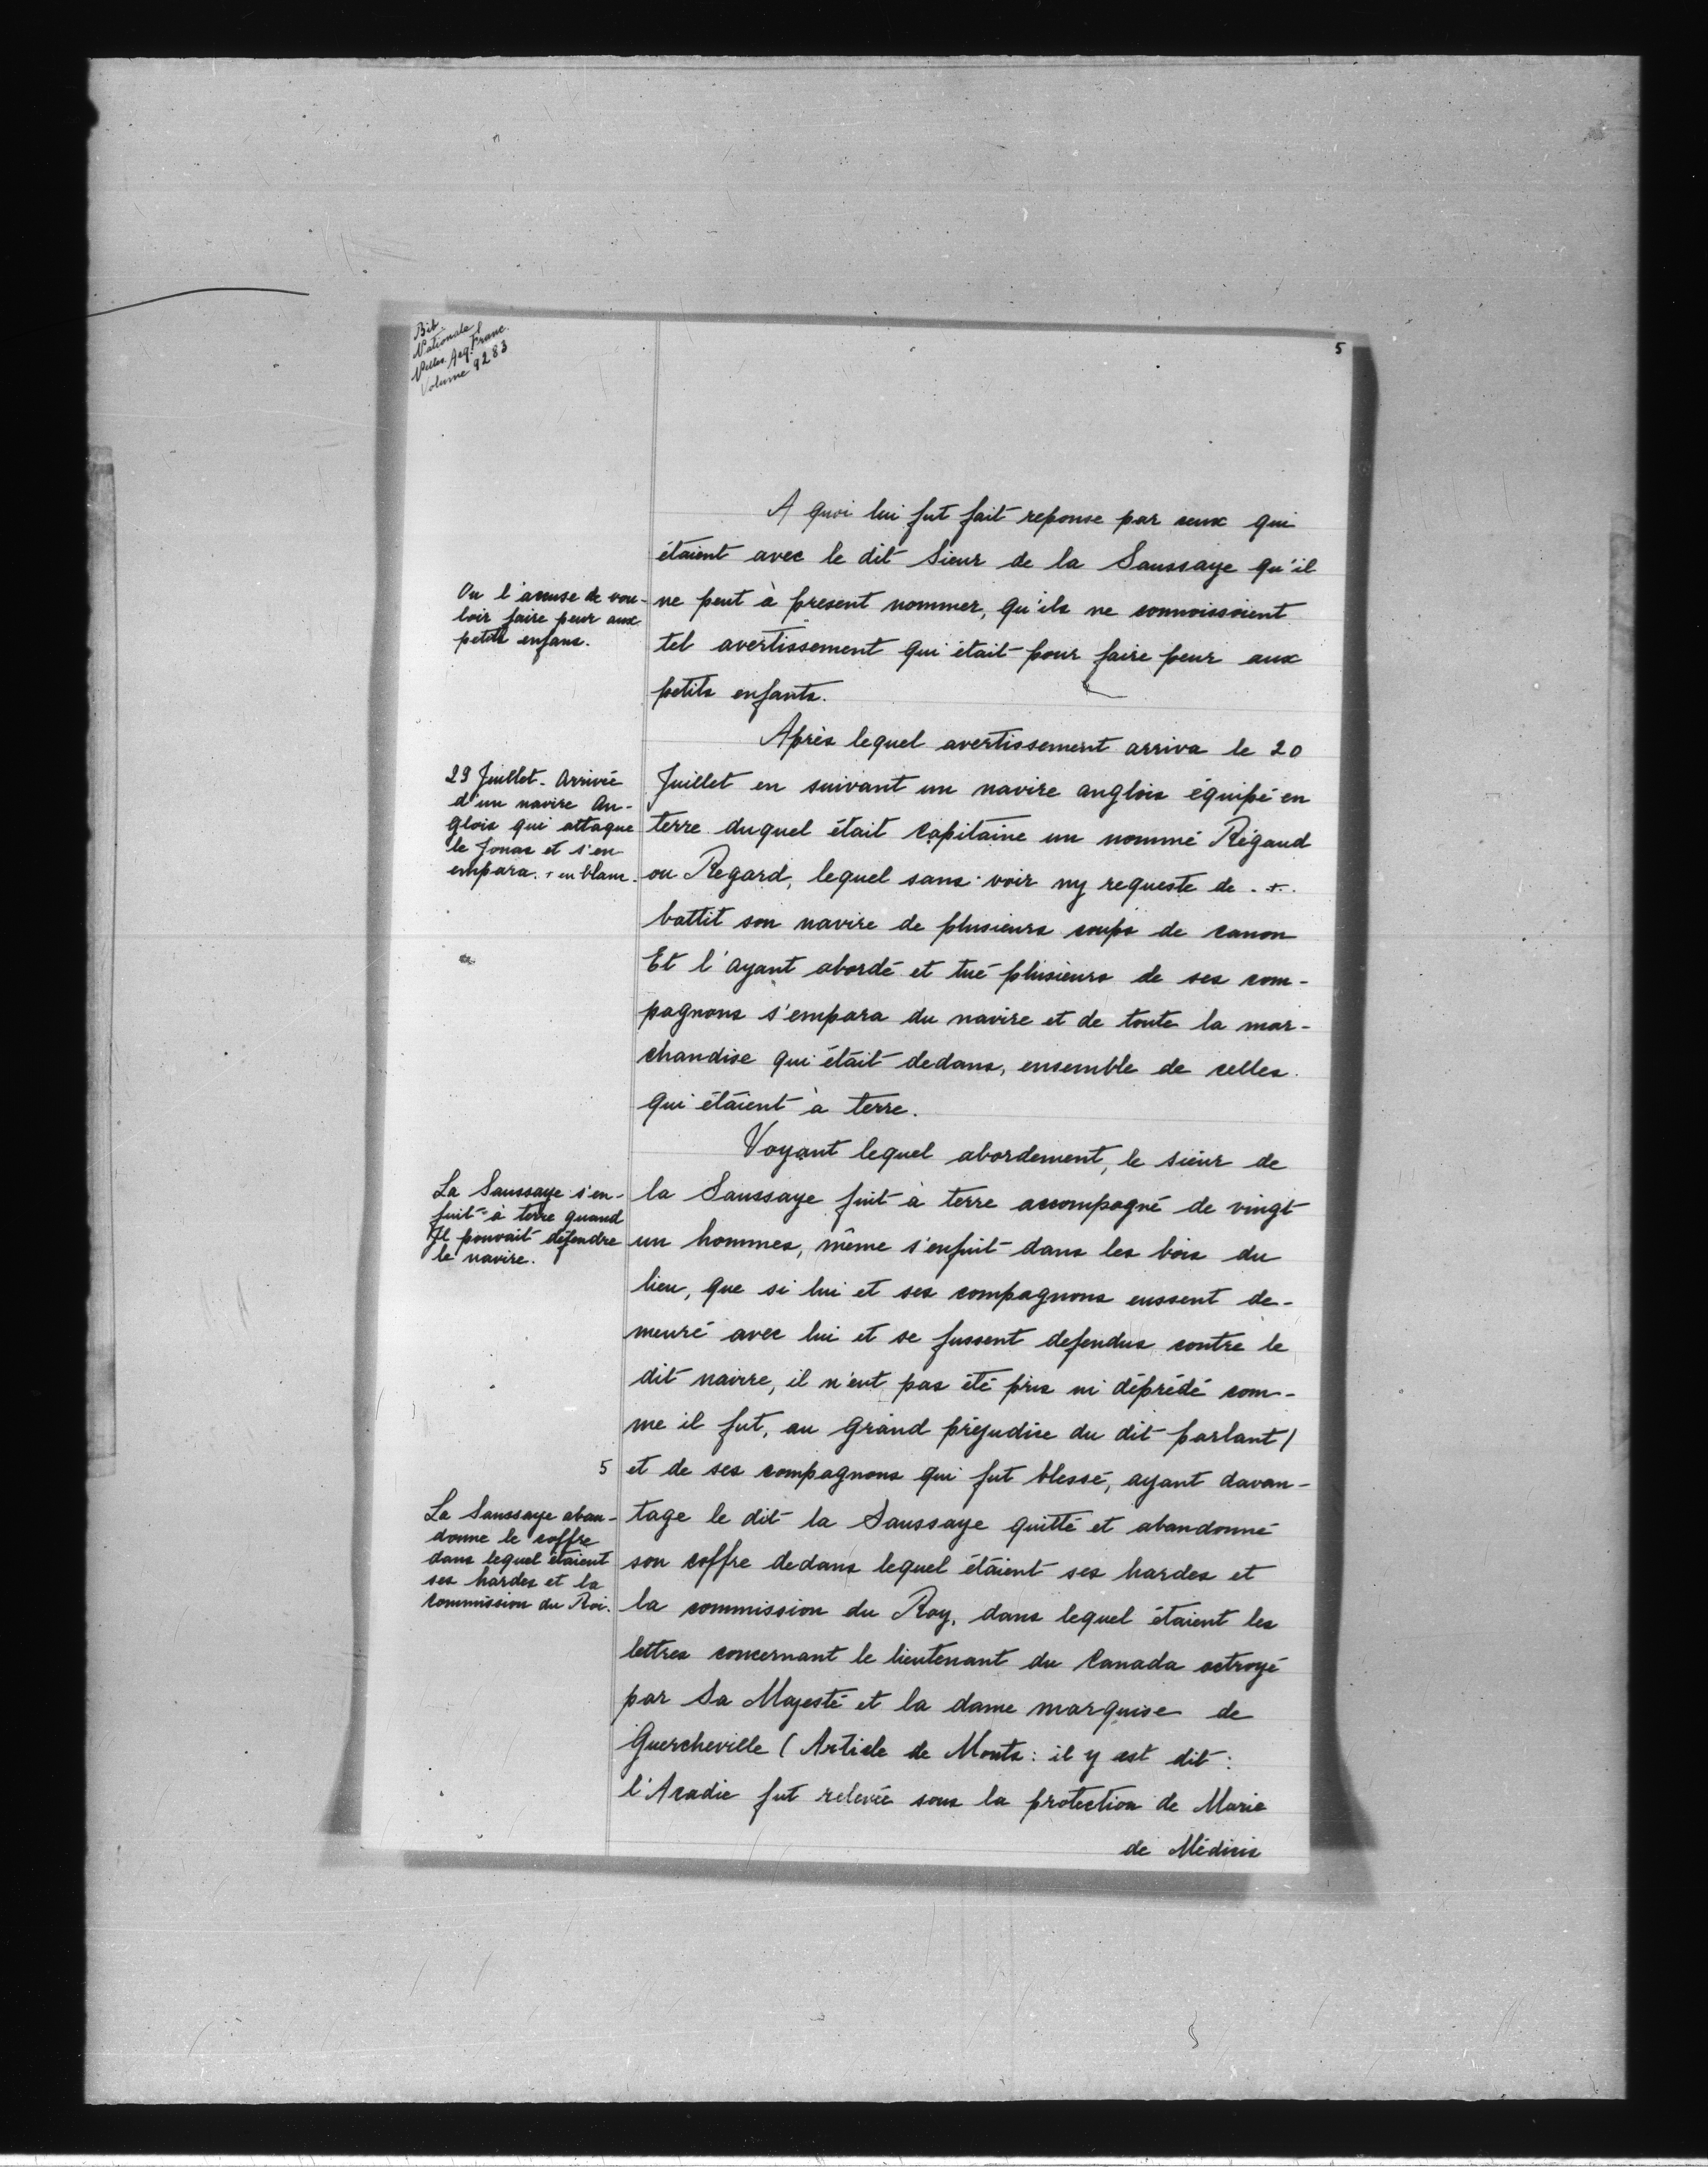 Bib
Nationale
Nlles. Acq. Franc.
Volume 9283
5
A quoi lui fut fait reponse par ceux qui
étaient avec le dit Sieur de la Saussaye qu'il
ne peut à present nommer, qu'ils ne connoissoient
tel avertissement qui était pour faire peur aux
petits enfants.
On l'accuse de vou-
loir faire peur aux
petits enfans.
Après lequel avertissement arriva le 20
Juillet en suivant un navire anglois équipé en
terre duquel était Capitaine un nommé Régaud
ou Regard, lequel sans voir ny requeste de . + .
battit son navire de plusieurs coups de canon
Et l'ayant abordé et tué plusieurs de ses com-
pagnons s'empara du navire et de toute la mar-
chandise qui était dedans, ensemble de celles
qui étaient à terre.
29 Juillet - Arrivée
d'un navire An-
glois qui attaque
le Jonas et s'en
empara. + en blanc.
Voyant lequel abordement, le sieur de
la Saussaye fuit à terre accompagné de vingt
un hommes, même s'enfuit dans les bois du
lieu, que si lui et ses compagnons eussent de-
meuré avec lui et se fussent defendus contre le
dit navire, il n'eut pas été pris ni déprédé com-
me il fut, au grand préjudice du dit parlant/
et de ses compagnons qui fut blessé, ayant davan-
tage le dit la Saussaye quitté et abandonné
son coffre dedans lequel étaient ses hardes et
la commission du Roy, dans lequel étaient les
lettres concernant le lieutenant du Canada octroyé
par Sa Majesté et la dame marquise de
Guercheville (Article de Monts: il y est dit:
l'Acadie fut relevée sous la protection de Marie
de Médicis
La Saussaye s'en-
fuit à terre quand
Il pouvait défendre
le navire.
5
La Saussaye aban-
donne le coffre
dans lequel étaient
ses hardes et la
commission du Roi.